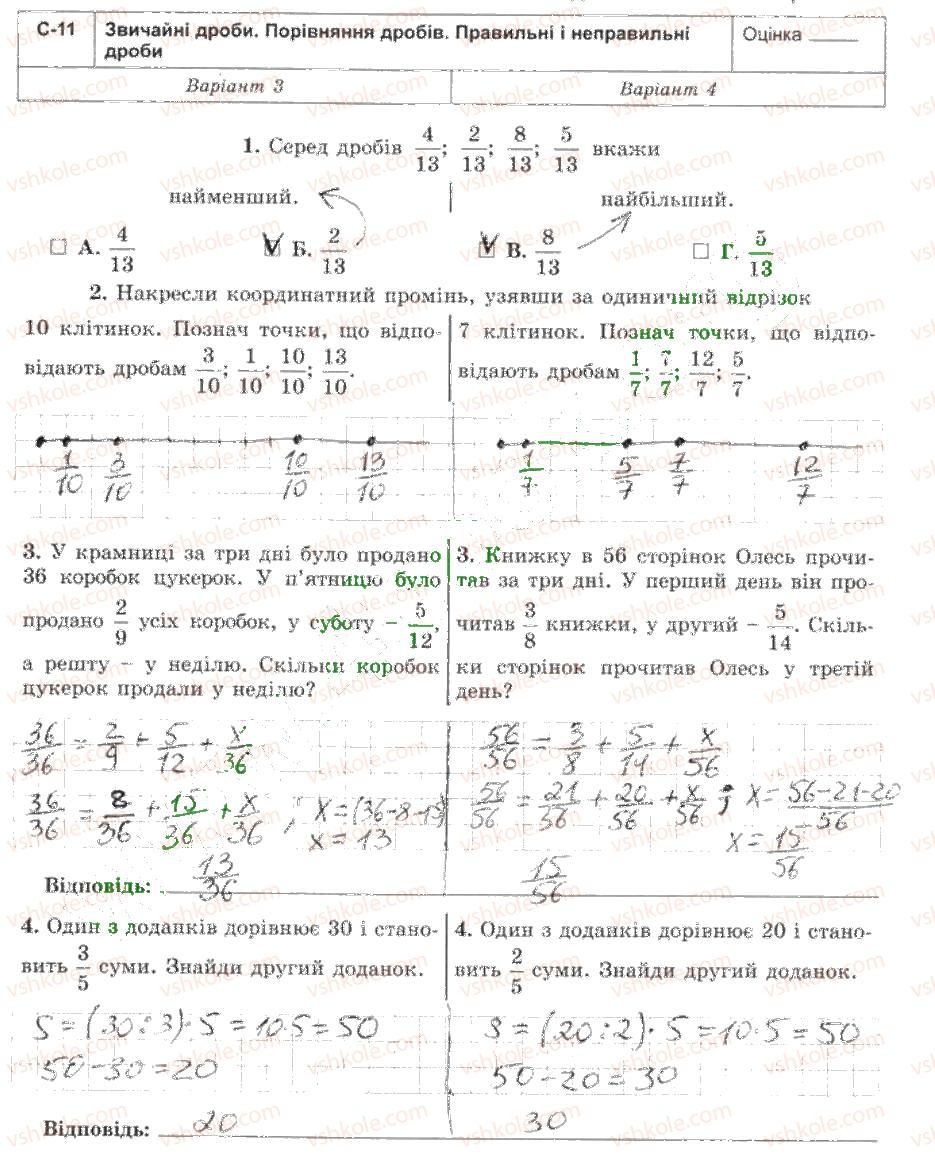 С-11 Звичайні дроби. Порівняння дробів. Правильні і неправильні дроби Оцінка ____
Варіант 3 Варіант 4
1. Серед дробів 4/13; 2/13; 8/13; 5/13 вкажи
найменший. найбільший.
А. 4/13 Б. 2/13 В. 8/13 Г. 5/13
2. Накресли координатний промінь, узявши за одиничний відрізок
10 клітинок. Познач точки, що відпо-
відають дробам 3/10; 1/10; 10/10; 13/10.
7 клітинок. Познач точки, що відпо-
відають дробам 1/7; 7/7; 12/7; 5/7.
1/10 3/10 10/10 13/10
1/7 5/7 7/7 12/7
3. У крамниці за три дні було продано
36 коробок цукерок. У п'ятницю було
продано 2/9 усіх коробок, у суботу – 5/12,
а решту – у неділю. Скільки коробок
цукерок продали у неділю?
36/36 = 2/9 + 5/12 + x/36
36/36 = 8/36 + 15/36 + x/36, x = (36-8-15)
x = 13
Відповідь: 13/36
3. Книжку в 56 сторінок Олесь прочи-
тав за три дні. У перший день він про-
читав 3/8 книжки, у другий – 5/14. Скіль-
ки сторінок прочитав Олесь у третій
день?
56/56 = 3/8 + 5/14 + x/56
56/56 = 21/56 + 20/56 + x/56; x = 56-21-20/56
x = 15/56
15/56
4. Один з доданків дорівнює 30 і стано-
вить 3/5 суми. Знайди другий доданок.
S = (30:3)·5 = 10·5 = 50
50-30=20
Відповідь: 20
4. Один з доданків дорівнює 20 і стано-
вить 2/5 суми. Знайди другий доданок.
S = (20:2)·5 = 10·5 = 50
50-20=30
30
vshkole.com